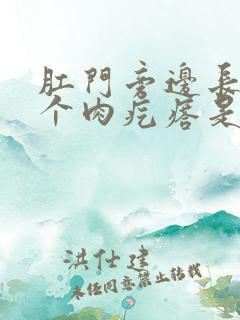 肛門旁邊長
个肉疙瘩是
洪仕建
未经同意禁止转载